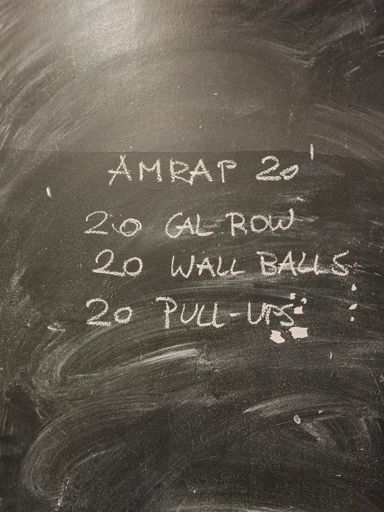 AMRAP 20'
20 CAL ROW
20 WALL BALLS
20 PULL-UPS